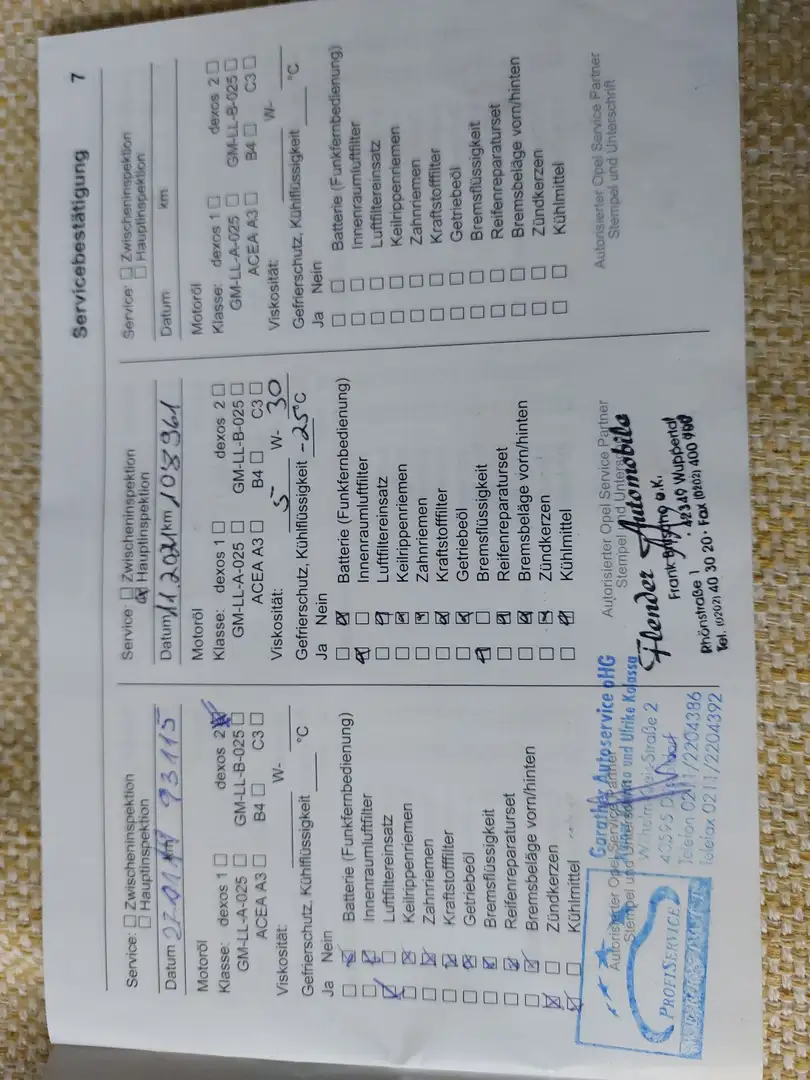 Servicebestätigung 7
Service: Zwischeninspektion
Hauptinspektion
Datum 93115
Motoröl
Klasse: dexos 1 dexos 2
GM-LL-A-025 GM-LL-B-025
ACEA A3 B4 C3
Viskosität: W-
Gefrierschutz, Kühlflüssigkeit
°C
Ja Nein
Batterie (Funkfernbedienung)
Innenraumluftfilter
Luftfiltereinsatz
Keilrippenriemen
Zahnriemen
Kraftstofffilter
Getriebeöl
Bremsflüssigkeit
Reifenreparaturset
Bremsbeläge vorn/hinten
Zündkerzen
Kühlmittel
Autorisierter Opel Service Partner
Stempel und
Garather Autoservice oHG
und Ulrike Kolassa
-Straße 2
40595
Telefon 0211/2204386
Telefax 0211/2204392
PROFISERVICE
Service Zwischeninspektion
Hauptinspektion
Datum 11.2021 km 108961
Motoröl
Klasse: dexos 1 dexos 2
GM-LL-A-025 GM-LL-B-025
ACEA A3 B4 C3
Viskosität: 5- W- 30
Gefrierschutz, Kühlflüssigkeit -25°C
Ja Nein
Batterie (Funkfernbedienung)
Innenraumluftfilter
Luftfiltereinsatz
Keilrippenriemen
Zahnriemen
Kraftstofffilter
Getriebeöl
Bremsflüssigkeit
Reifenreparaturset
Bremsbeläge vorn/hinten
Zündkerzen
Kühlmittel
Autorisierter Opel Service Partner
Stempel und
Flender Automobile
Frank e.K.
Rhönstraße 1 · 42349 Wuppertal
Tel. (0202) 40 30 20 · Fax (0202) 400 900
Service: Zwischeninspektion
Hauptinspektion
Datum km
Motoröl
Klasse: dexos 1 dexos 2
GM-LL-A-025 GM-LL-B-025
ACEA A3 B4 C3
Viskosität: W-
Gefrierschutz, Kühlflüssigkeit
°C
Ja Nein
Batterie (Funkfernbedienung)
Innenraumluftfilter
Luftfiltereinsatz
Keilrippenriemen
Zahnriemen
Kraftstofffilter
Getriebeöl
Bremsflüssigkeit
Reifenreparaturset
Bremsbeläge vorn/hinten
Zündkerzen
Kühlmittel
Autorisierter Opel Service Partner
Stempel und Unterschrift